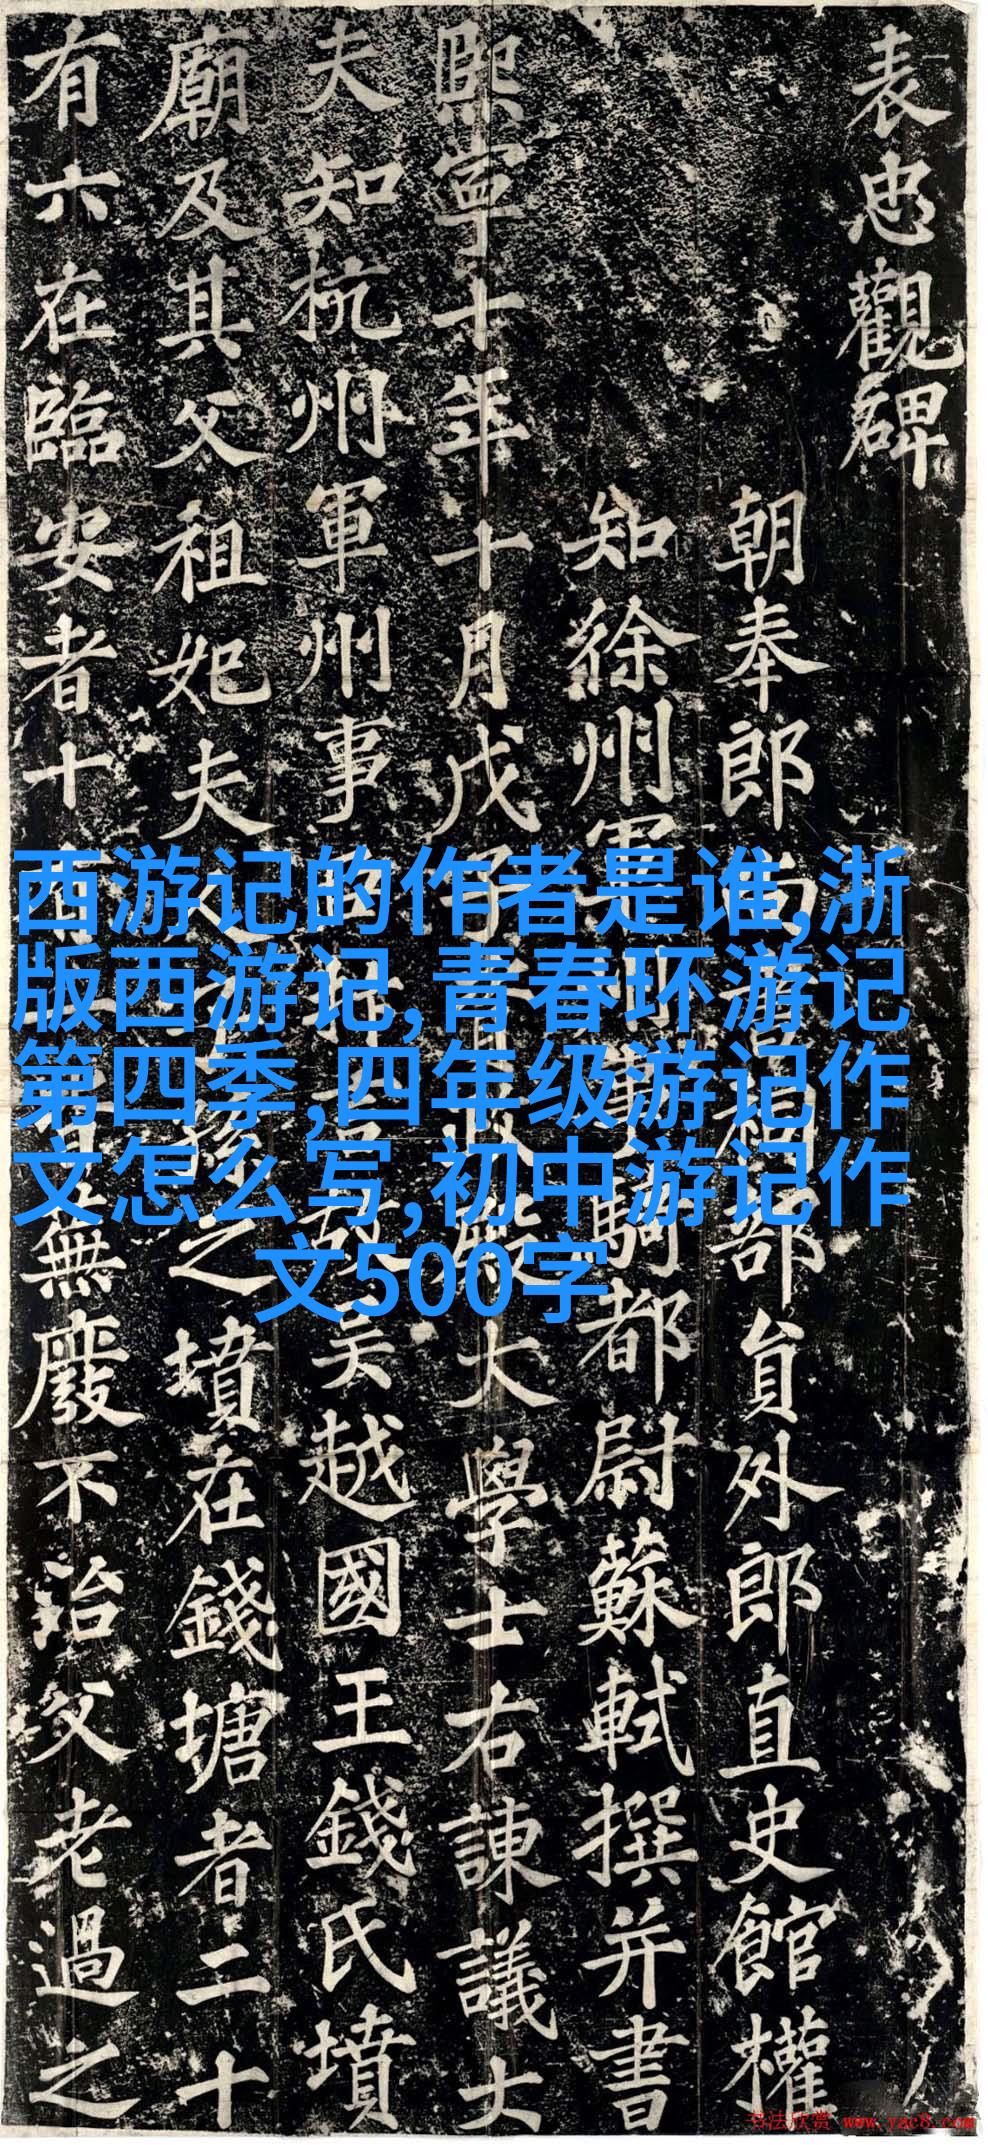 表忠觀碑
朝奉郎尚部員外郎直史館權
知徐州軍騎都尉蘇軾撰并書
熙寧十年十月戊子殿大學士右諫議大
夫知杭州軍州事臣抃言故吳越國王錢氏墳
廟及其父祖妃夫人孫之墳在錢塘者二十
有六在臨安者十有無廢不治父老過之
西游记的作者是谁,浙
版西游记,青春环游记
第四季,四年级游记作
文怎么写,初中游记作
文500字
书法欣赏 www.yac8.com